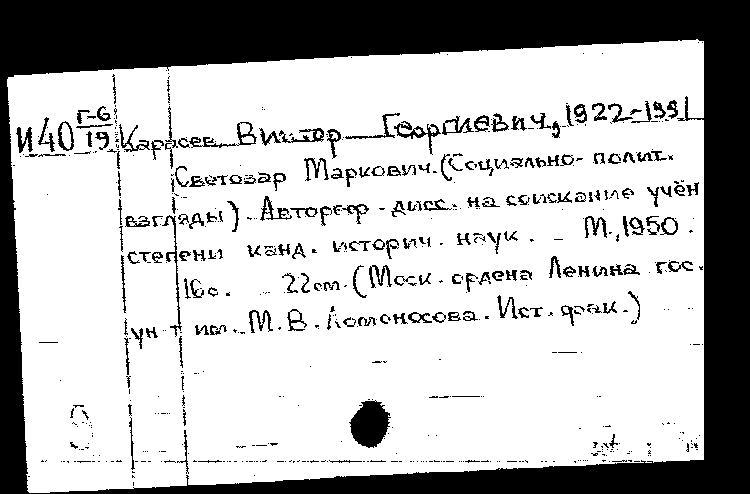 И40 Г-6/19 Карасев Виктор Георгиевич, 1922-1991
Светозар Маркович. (Социально-полит.
взгляды). Автореф. дисс. на соискание учён
степени канд. историч. наук. - М., 1950.
16с. 22см. (Моск. ордена Ленина гос.
ун-т им. М.В. Ломоносова. Ист. фак.)